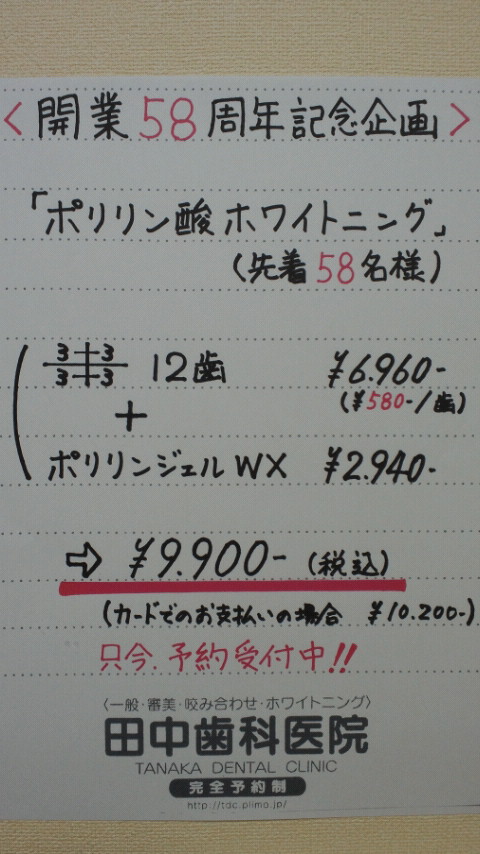 <開業58周年記念企画>
「ポリリン酸ホワイトニング」
(先着58名様)
3+3
3+3 12歯 ¥6.960-
(¥580-/歯)
+
ポリリンジェルWX ¥2.940-
⇨ ¥9.900-(税込)
(カードでのお支払いの場合 ¥10.200-)
只今.予約受付中!!
〈一般・審美・咬み合わせ・ホワイトニング〉
田中歯科医院
TANAKA DENTAL CLINIC
完全予約制
http://tdc.plimo.jp/